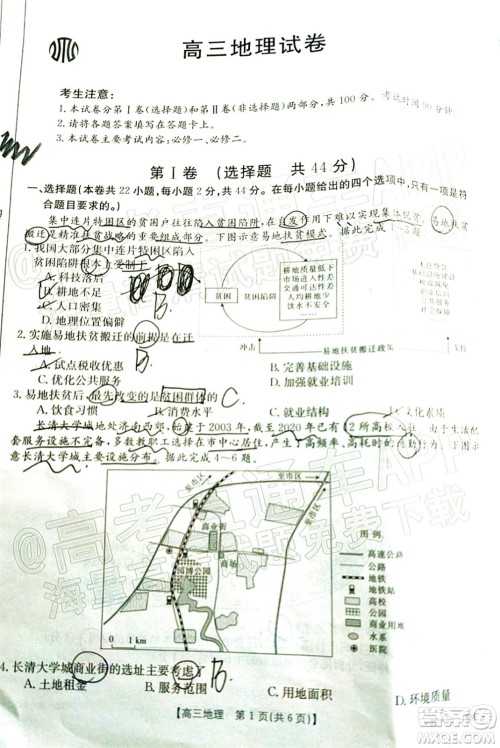 高三地理试卷
考生注意：
1.本试卷分第Ⅰ卷(选择题)和第Ⅱ卷(非选择题)两部分，共100分。考试时间90分钟
2.请将各题答案填写在答题卡上。
3.本试卷主要考试内容：必修一、必修二。
第Ⅰ卷 (选择题 共44分)
一、选择题(本卷共22小题，每小题2分，共44分。在每小题给出的四个选项中，只有一项是符合
题目要求的。)
集中连片特困区的贫困户往往陷入贫困陷阱，在自发作用下难以实现长久脱贫，易地扶贫
搬迁是精准扶贫的重要措施。下图示意易地扶贫模式。据此完成1～3题。
1.我国大部分集中连片特困区陷入
贫困陷阱根本上受制于
A.科技落后
B.耕地不足
C.人口密集
D.地理位置偏僻
贫困
贫困陷阱
耕地质量低下
市场进入性差
交通可达性差
人均耕地少
饮水不安全
冲击
易地扶贫搬迁政策
支持
2.实施易地扶贫搬迁的前提是在迁
入地 B.
A.试点税收优惠
B.完善基础设施
C.优化公共服务
D.加强就业培训
3.易地扶贫后，最先改变的是贫困群体的 C
A.饮食习惯
B.消费水平
C.就业结构
D.文化素质
长清大学城地处济南西郊，始建于2003年，截至2020年已有12所高校入住，由于生活配
套服务设施不完备，多数教职工选择在市中心居住，产生了高频率、高耗时的通勤行为。下图
示意长清大学城主要设施分布。据此完成4～6题。
至市区
至市区
商业街
园博公园
0 1 km
图例
高速公路
公路
地铁
地铁站
高校
公园
商业用地
水系
医院
4.长清大学城商业街的选址主要考虑了 B
A.土地租金
B.服务范围
C.用地面积
D.环境质量
【高三地理 第1页(共6页)】